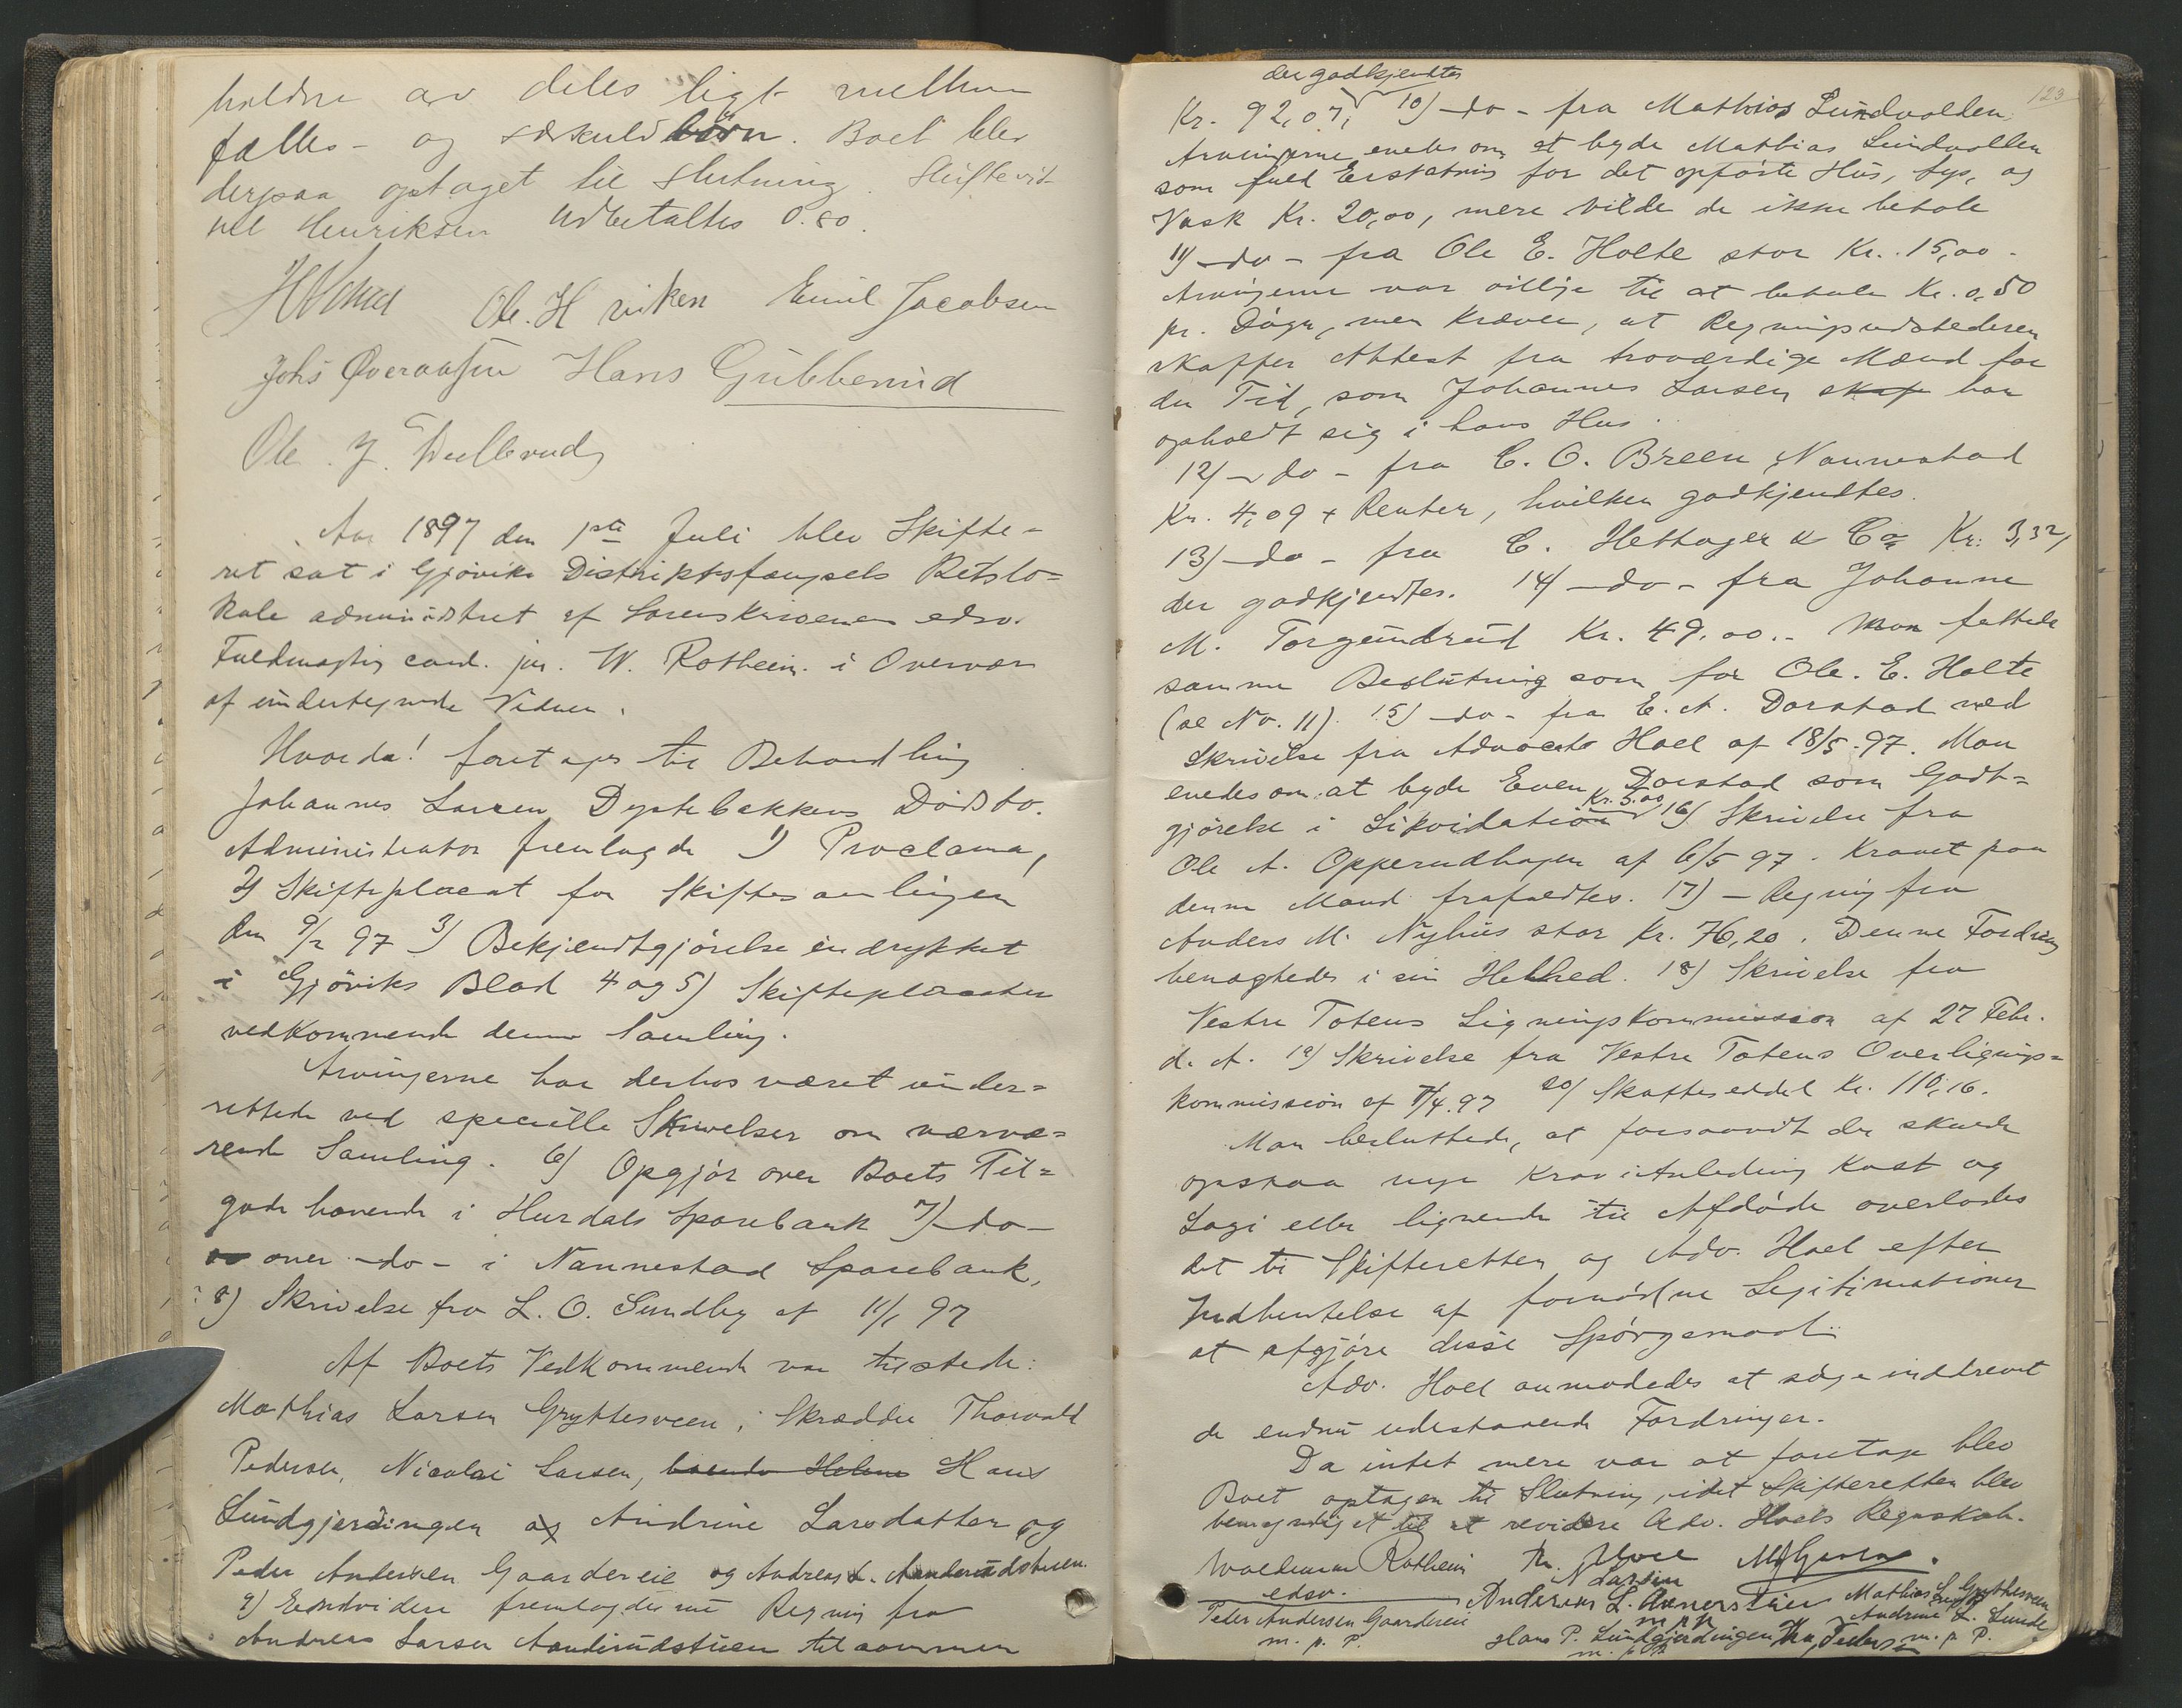 holdne av deles ligt mellem
fælles- og særkuldbörn. Boet blev
derpaa optaget til slutning. Skiftevit-
Henriksen udbetaltes 0.80.
Ole. H viken Emil Jacobsen
Johs Øveraasen Hans Gübberud
Ole. J.
Aar 1897 den 1ste Juli blev Skifte-
ret sat i Gjøviks Distriktsfængsels Retslo-
kale administret af Sorenskriveren edsv.
Fuldmægtig cand. jur. W. Rothein. i Overvær
af undertegnede Vidner.
Hvorda! foretages til Behandling
Johannes Larsen Dystebakkens Dødsbo.
Administrator fremlagde 1) Proclama,
2) Skifteplacat for Skiftesamlingen
den 9/2 97 3) Bekjendtgjörelse indrykket
i Gjöviks Blad 4 og 5) Skifteplacater
vedkommende denne Samling.
Arvingerne har derhos været under=
rettede ved specielle Skrivelser om nærvæ=
rende Samling. 6) Opgjör over Boets Til=
gode havende i Hurdals Sparebank 7) -do-
over -do- i Nannestad Sparebank,
8) Skrivelse fra L. O. Sundby af 11/1 97
Af Boets Vedkommende var tilstede:
Mathias Larsen Gryttesveen, Skrædder Thorvald
Pedersen, Nicolai Larsen, Hans
Sündgjerdingen og Andrine Larsdatter og
Peder Andersen Gaardereie og Andreas L. Aanderudstuen.
9) Endvidere fremlagdes nu Regning fra
Andreas Larsen Aanderudstuen tilsammen
123
der godkjendtes
Kr. 92,07, 10) -do- fra Mathias Lundvolden,
Arvingerne enedes om at byde Mathias Lundvollen
som fuld Erstatning for det opførte Hus, Lys, og
Vask Kr. 20,00, mere vilde de ikke betale
11) -do- fra Ole E. Holte stor Kr. 15,00.
Arvingerne var villige til at betale Kr. 0,50
pr. Dögn, men kræver, at Regningsudstederen
skaffer Attest fra troværdige Mænd for
den Tid, som Johannes Larsen har
opholdt sig i hans Hus.
12) -do- fra C. O. Breen, Nannestad
Kr. 4,09 + Renter, hvilken godkjendtes.
13) -do- fra C. Hettager & Co Kr. 3,32,
der godkjendtes. 14) -do- fra Johanne
M. Torgundrud Kr. 49,00.- Man fattede
samme Beslutning som for Ole. E. Holte
(se No. 11). 15) -do- fra E. A. Dorstad ved
Skrivelse fra Advocat Hoel af 18/5.97. Man
enedes om at byde Even Dorstad som Godt=
gjörelse i Likvidation Kr. 5.00 16) Skrivelse fra
Ole A. Opperudhagen af 6/5 97. Kravet paa
denne Mand frafaldtes. 17) - Regning fra
Anders M. Nyhus stor Kr. 76,20. Denne Fordring
benægtedes i sin Helhed. 18) Skrivelse fra
Vestre Totens Ligningskommission af 27 Febr.
d. A. 19) Skrivelse fra Vestre Totens Overlignings=
kommission af 7/4.97 20) Skatteseddel Kr. 110,16.
Man besluttede, at forsaavidt der skulde
opstaa nye Krav i Anledning Kost og
Logi eller lignende til Afdöde overlodes
det til Skifteretten og Adv. Hoel efter
Indhentelse af fornödne Legitimationer
at afgjöre disse Spörgsmaal.
Adv. Hoel anmodedes at söge inddrevet
de endnu udestaaende Fordringer.
Da intet mere var at foretage blev
Boet optagen til Slutning, idet Skifteretten blev
bemyndiget til at revidere Adv. Hoels Regnskab.
Woldemar Rothein Th. Hoel
edsv. N Larsen
Andreas L. Mathias L Gryttesveen
Peder Andersen Gaardereie m p p Andrine L. Sunde
m. p. P. Hans P. Sündgjerdingen Th. Pedersen m. p P.
m. p P